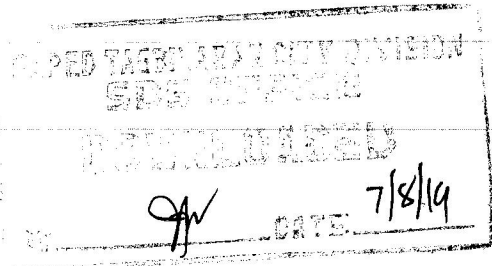 DEPED TAGBILARAN CITY DIVISION
SDS OFFICE
DOWNLOADED
DATE: 7/8/19